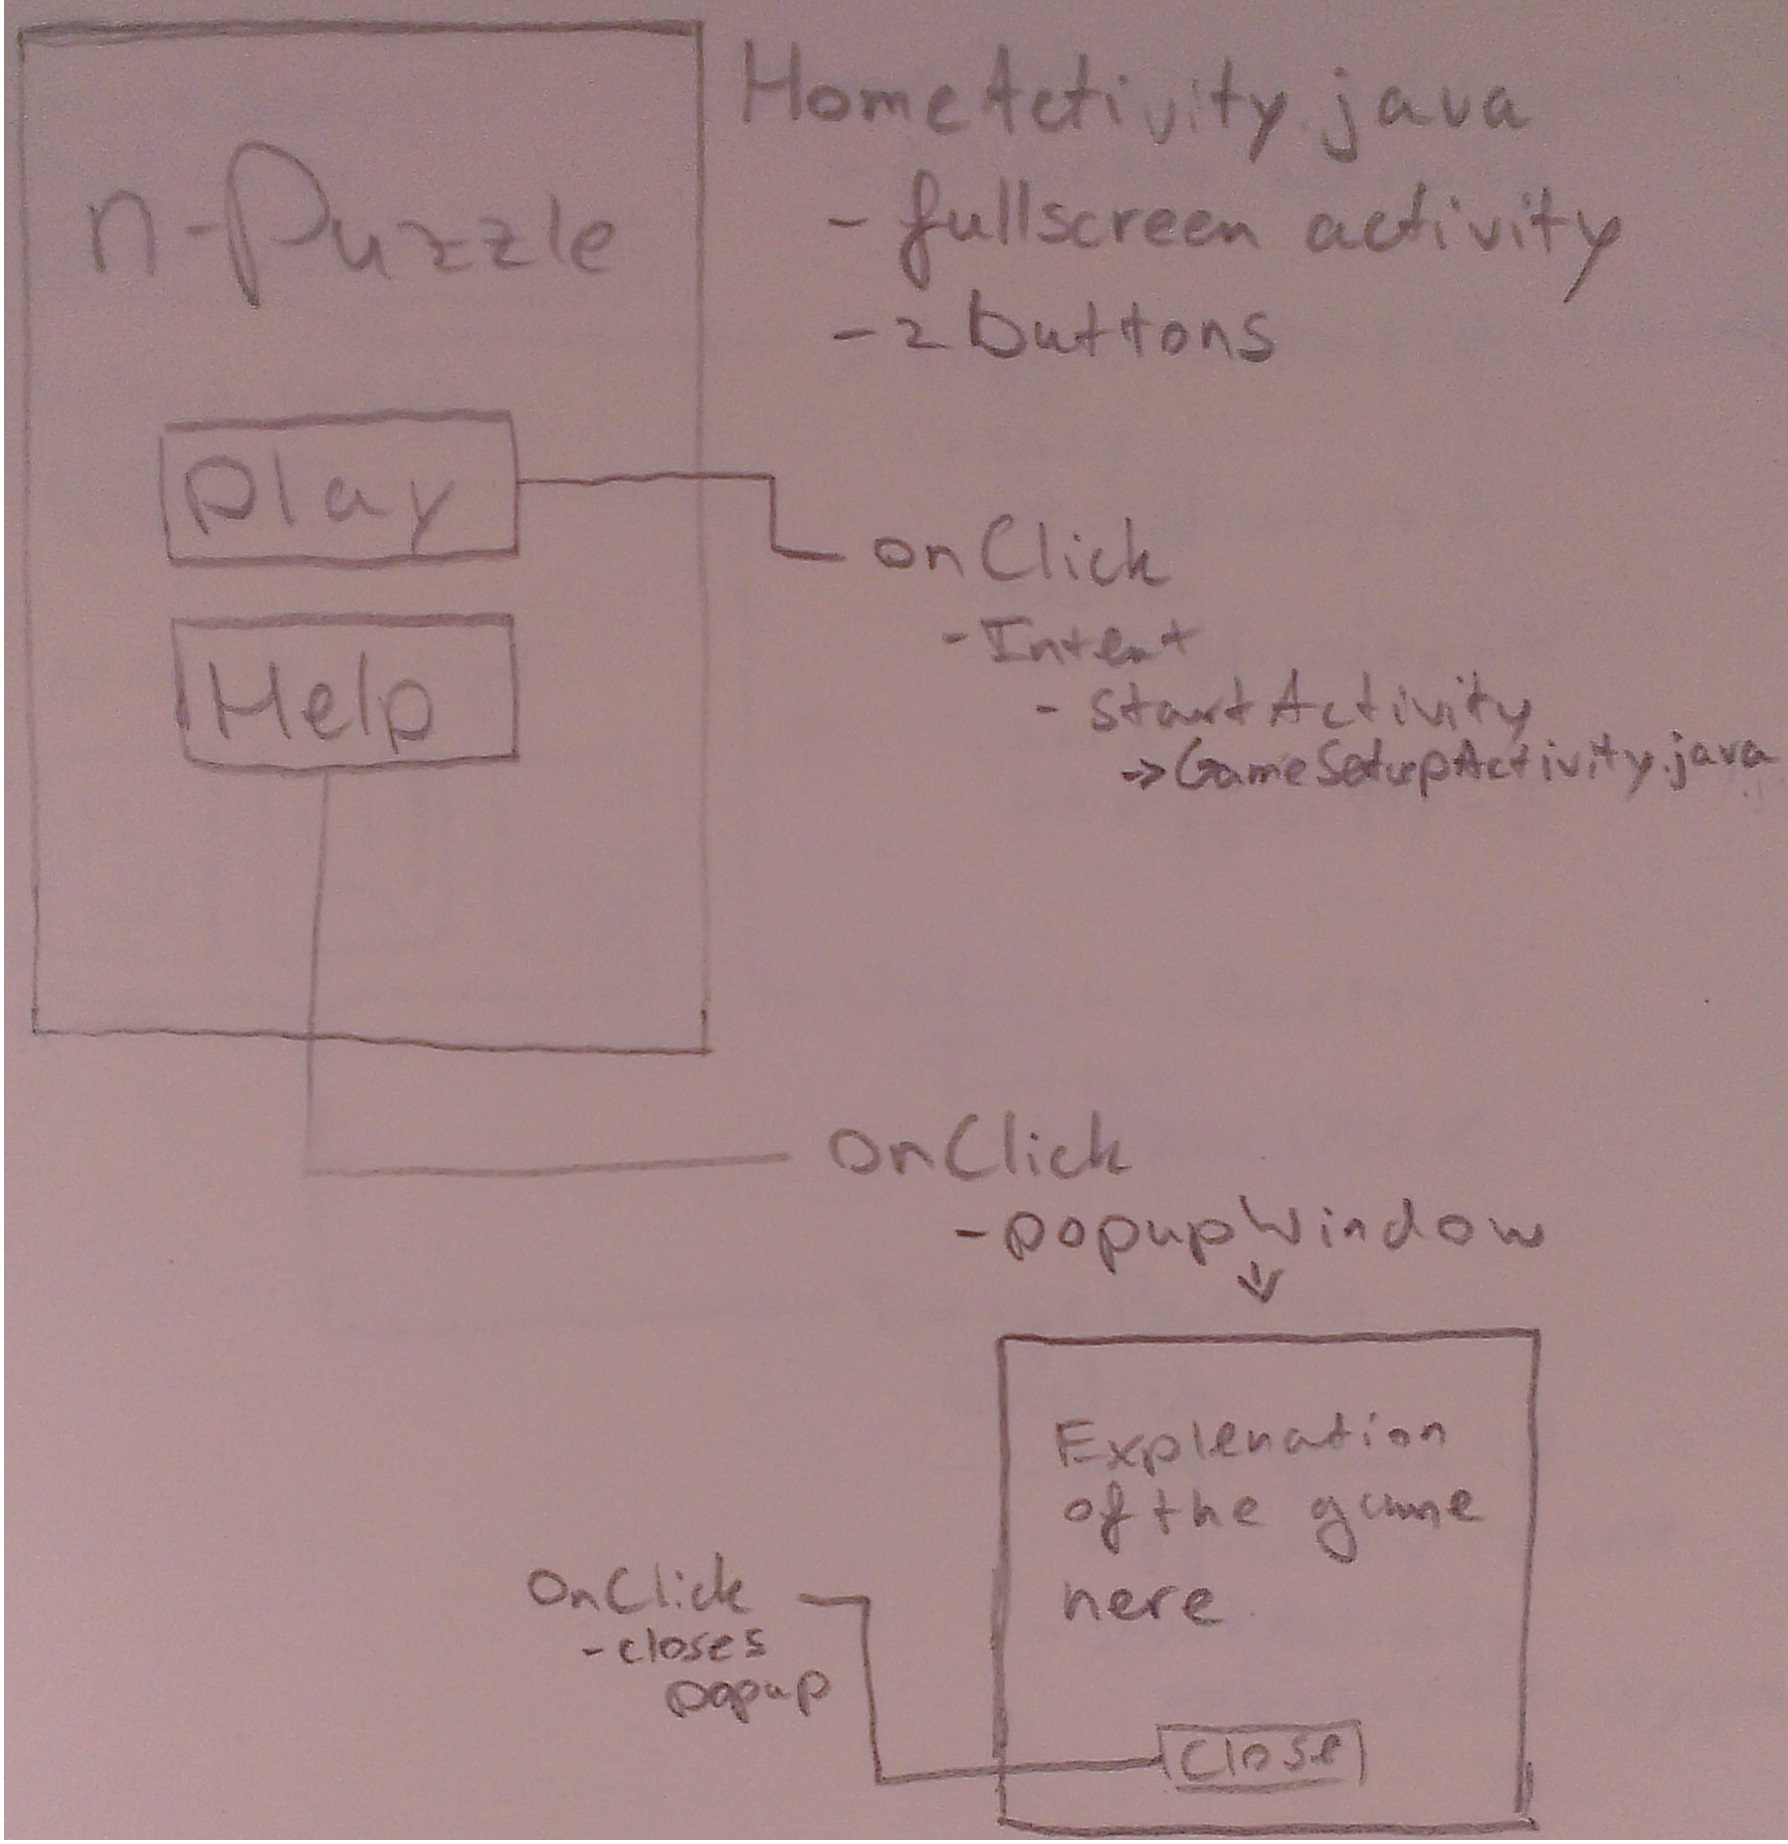 HomeActivity.java
- fullscreen activity
- 2 buttons
n-Puzzle
Play
Help
onClick
- Intent
- startActivity
→ GameSetupActivity.java
onClick
- popupWindow
Explenation
of the game
here
Close
OnClick
- closes
popup